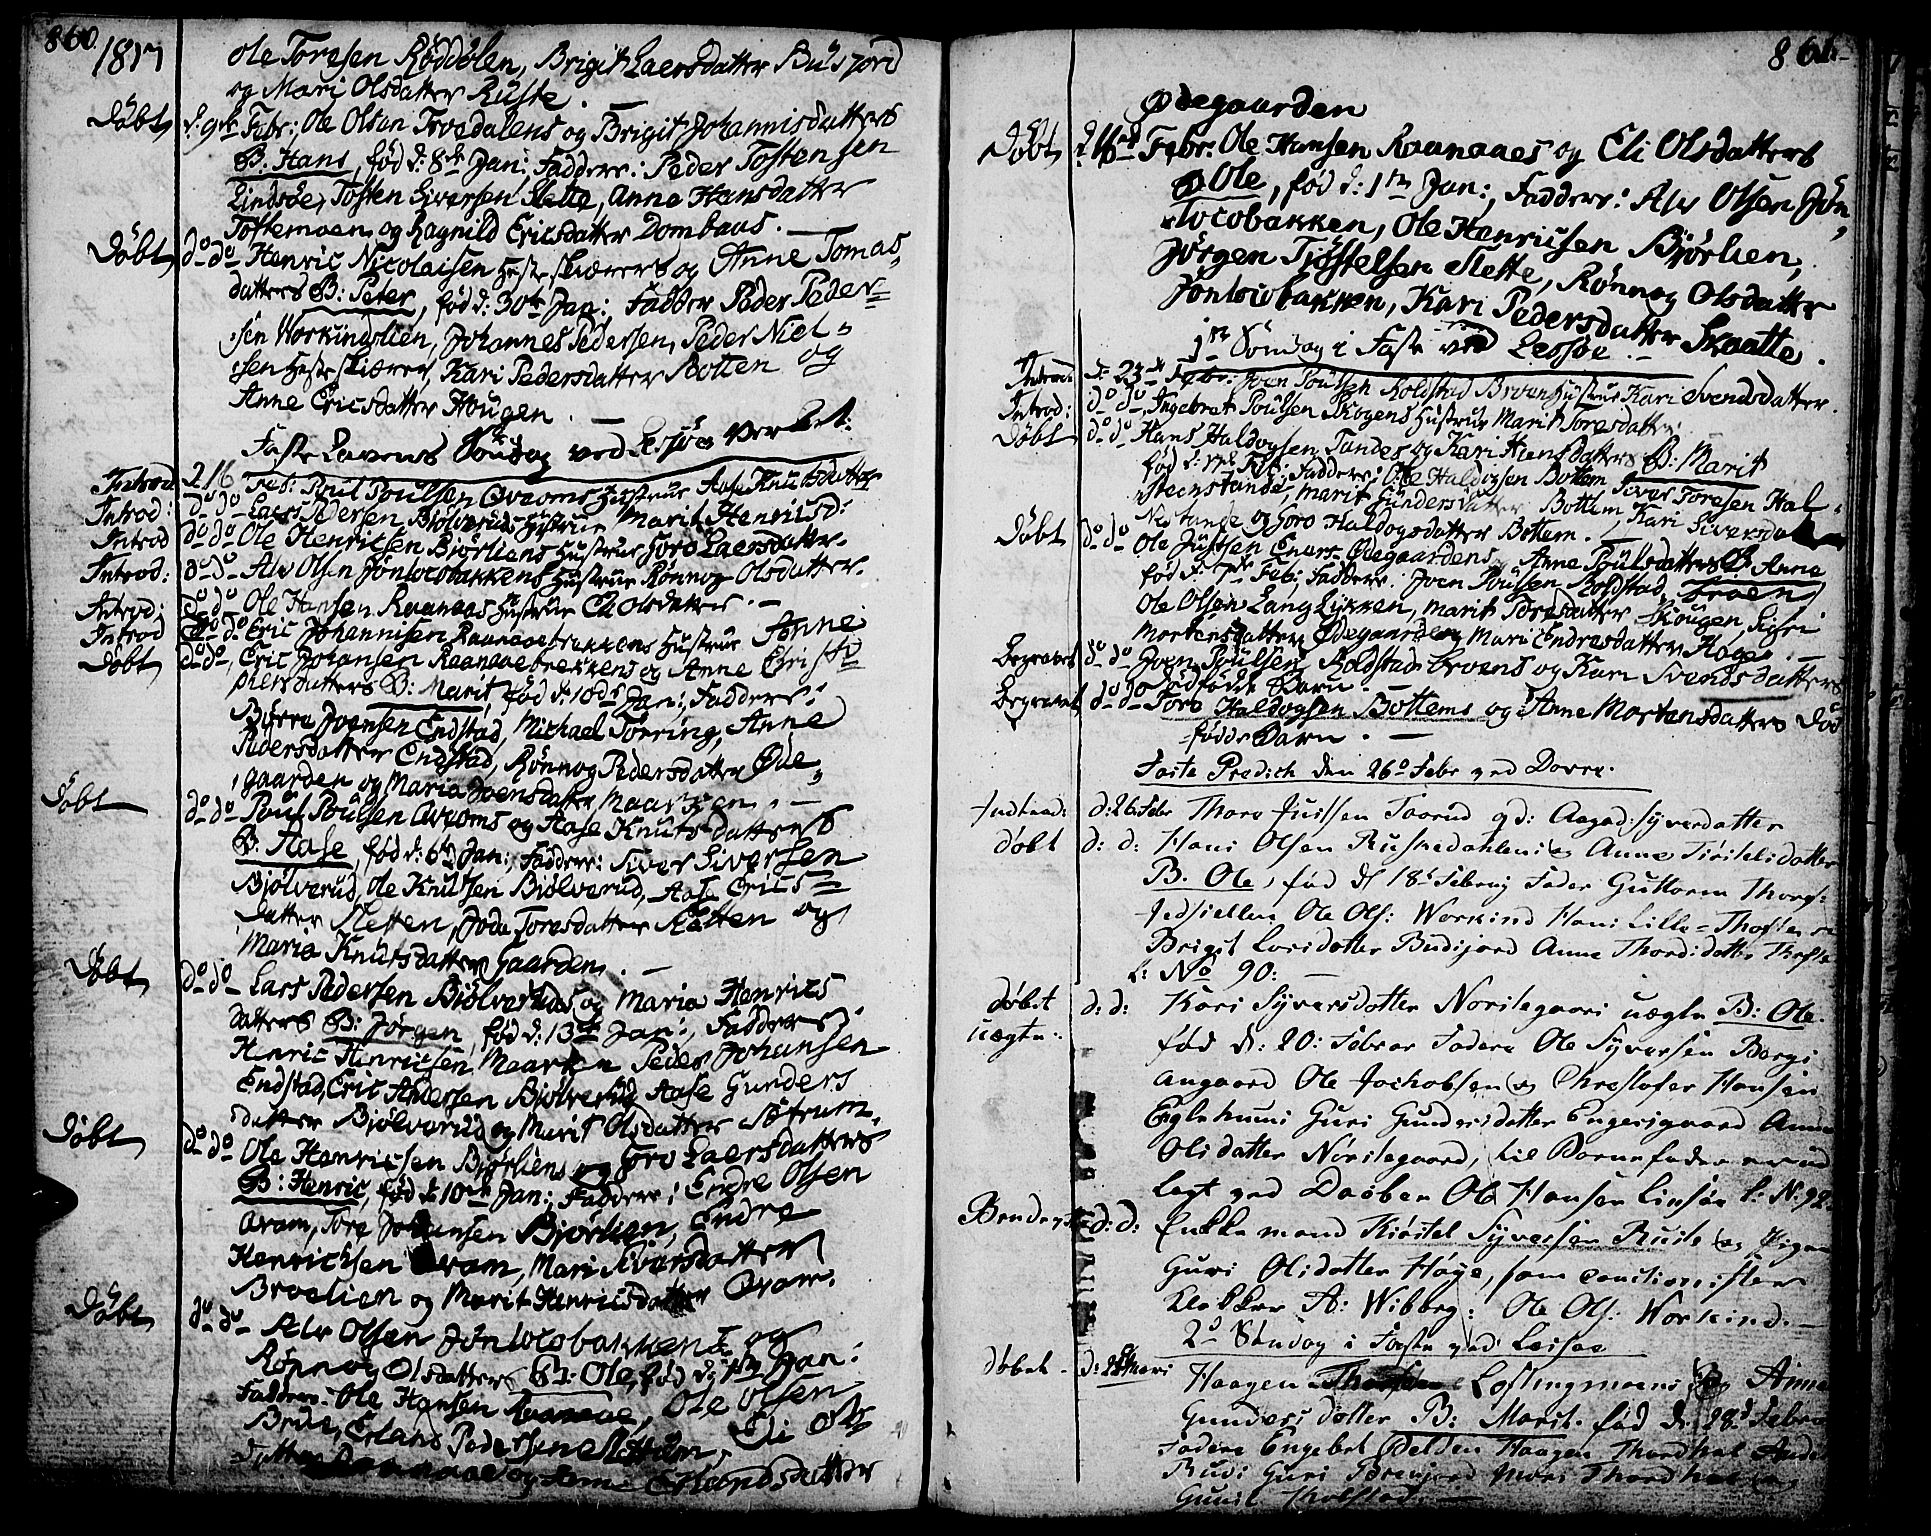 860.
1817
Ole Toresen Røddølen, Brigit Laersdatter Busjord
og Mari Olsdatter Ruste.
Døbt d: 9de Febr: Ole Olsen Tvedalens og Brigit Johannisdatters
B: Hans, fød d: 8de Jan: Faddere: Peder Tostensen
Lindsøe, Tosten Siversen Slette, Anna Hansdatter
Toftemoen og Ragnild Ericsdatter Dombaas. —
Døbt do do Henric Nicolaisen Heste skiærers og Anne Tomas-
datters B: Peter, fød d: 30te Jan: Fadder Peder Peder-
sen Workingslien, Johannes Pedersen, Peder Niel-
sen Heste skiærer, Kari Pedersdatter Botten og
Anne Ericsdatter Hougen. —
Faste Lavens Søndag ved Lesjøe Verket:
Introd 216 Feb: Poul Poulsen Qvams Hustrue Aase Knutsdatter
Introd: do do Laers Pedersen Biølveruds Hustrue Marit Henricsd:
Introd do do Ole Henricsen Bjørliens Hustrue Goro Laersdatter.
Introd: do do Alv Olsen Jonlocobakkens Hustrue Rønnog Olsdatter.
Introd: do do Ole Hansen Raanaaes Hustrue Eli Olsdatter. —
Introd do do Eric Johannisen Raanaaebrekkens Hustrue Anne
Døbt do do, Eric Johansen Raanaaebrekkens og Anne Christo
phersdatters B: Marit, fød d: 10de Jan: Faddere:
Biørre Joensen Endstad, Michael Torring, Anne
Pedersdatter Endstad, Rønnog Pedersdatter Øde-
gaarden og Maria Joensdatter Maartgen. —
Døbt do do Poul Poulsen Qvams og Aase Knutsdatters
B: Aase, fød d: 6te Jan: Faddere: Siver Siversen
Bjølverud, Ole Knutsen Biølverud, Aase Erics-
datter Sletten, Joda Toresdatter Sletten og
Maria Knutsdatter Gaarden. —
Døbt do do Lars Pedersen Biølveruds og Maria Henrics
datters B: Jørgen, fød d: 13de Jan:, Faddere:
Henric Henricsen, Peder Johansen
Endstad, Eric Andersen Biølverud, Aase Gunders
datter Bjølverud og Marit Olsdatter Søtrum.
Døbt do do Ole Henricsen Bjørliens og Goro Laersdatters
B: Henric, fød d: 10de Jan: Faddere: Endre Olsen
Qvam, Tore Johansen Bjørlien, Endre
Henrichsen Qvam, Mari Siversdatter
Broelien og Marit Henricsdatter Qvam.
Døbt do do Alv Olsen Jonlocobakkens og
Rønnog Olsdatters B: Ole, fød d: 1ste Jan:
Faddere: Ole Hansen Raanaae, Ole Olsen
Brue, Erland Pedersen Sletholm, Eli Ols
datter Raanaae og Erlandsdatter
861
Ødegaarden
Døbt 216de Febr: Ole Hansen Raanaaes og Eli Olsdatters
Ole, fød d: 1ste Jan:, Faddere: Alv Olsen Jon-
locobakken, Ole Henricsen Bjørlien,
Jørgen Tjøstelsen Slette, Rønnog Olsdatter
Jonlocobakken, Kari Pedersdatter Skaatte.
1ste Søndag i Faste ved Lessøe. —
Introd: d: 23de Febr: Joen Poulsen Boldstad Broens Hustrue Kari Svendsdatter.
Introd: do do, Ingebret Poulsen Skogens Hustrue Marit Toresdatter.
Døbt do do Hans Haldogsen Tandes og Kari Hiensdatters B: Marit
fød d: 17de Feb: Faddere: Ole Haldogsen Bottem, Siver Toresen Hal-
steenstande, Marit Gundersdatter Bottem, Kari Siversda
Nestande og Goro Haldogsdatter Bottem. —
Døbt do do Ole Justsen Enars Ødegaardens, Anne Poulsdatters B: Anne
fød d: 7de Feb: Faddere: Joen Poulsen Boldstad Broen,
Ole Olsen Lang Lykken, Marit Toresdatter Skougen, Sigri
Mortensdatter Ødegaarden og Mari Endresdatter Kogas. —
Begravet do do Joen Poulsen Boldstad Broens og Kari Svendsdatters
dødfødde Barn. —
Begravet do do Tore Haldogsen Bottems og Anne Mortensdatters død
fødde Barn. —
Faste Predich den 26o Febr ved Dovre.
Indled: d: 26 Febr Thore Justsen Taarud gd: Aagad: Syverdatter
døbt d: d: Hans Olsen Rusnedahlens og Anne Tiøstelsdatter
B. Ole, fød d 18de Februar Fader Guttorm Thors:
Jedsiellen Ole Ols: Workind Hans Lille-Thofte
Brigit Larsdatter Budsjord Anne Thordsdatter Thofte
L: No 90: —
døbt d: d: Kari Syversdatter Norstegaard uægte B: Ole.
uægte: fød d: 20: Febrar Fadere Ole Syversen Bergs
angaard Ole Jochobsen og Christofer Hansen
Eglehuus Guri Gundersdatter Engersgaard Anne
Olsdatter Norstegaard, til Barnefader er ud
lagt ved Daaben Ole Hansen Linsøe L: N: 92.
d: d: Enkkemand Kiøstel Syversen Ruste og Pigen
Guri Olsdatter Høye, som Cautionister
Klokker A: Wibbey: Ole Ols: Workind. —
2o Søndag i Faste ved Lesøe
døbt - d: 2de Mars Haagen Losiengmoens og Anne
Gundersdatter B: Marit. fød d: 28d Febru
Fadere Engebet Helden Haagen Thordhal Ande
Rudi Guri Brenjord Mari Thordhal og
Gunil Tholstad. —